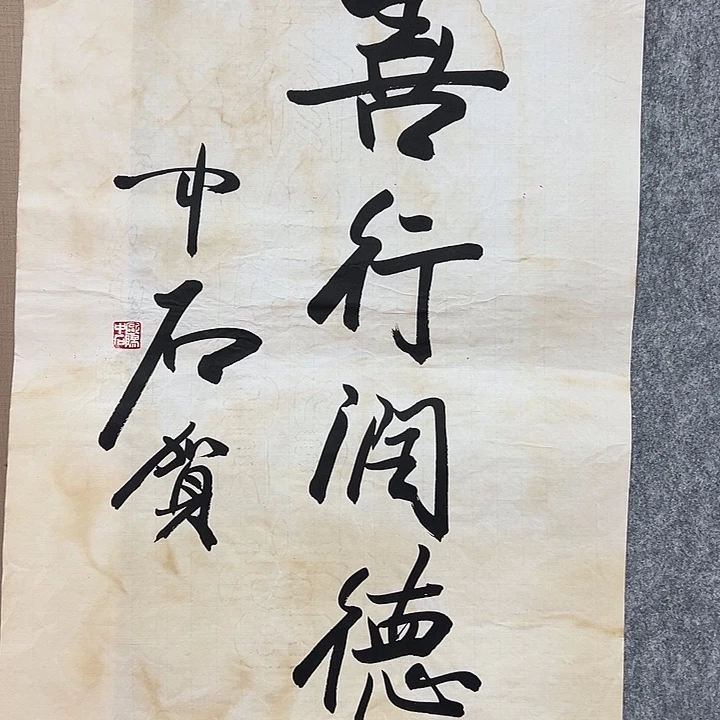 善行润德
中石贺